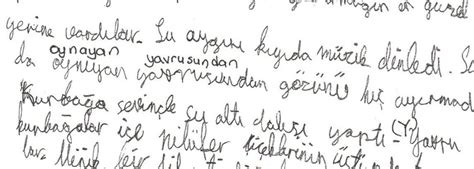 en güzel
yerine vardılar. Su aygırı kıyıda müzik dinledi. So
oynayan yavrusundan
da oynuyan yavrusundan gözünü hiç ayırmad
Kurbağa sevinçle su altı dalışı yaptı (Y) Yavru
kurbağalar ise nilüfer çiçeklerinin üst
lar. Minik bir